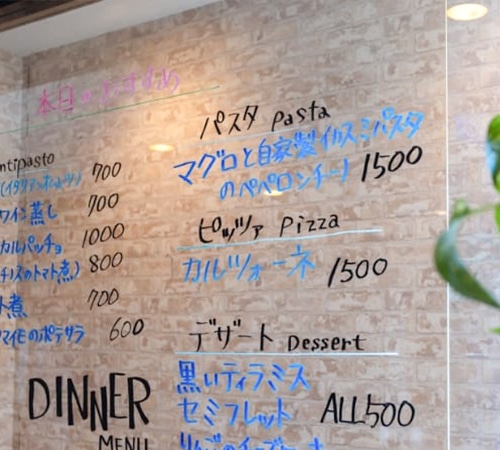 本日のおすすめ
ntipasto
(イタリアンオムレツ) 700
ワイン蒸し 700
カルパッチョ 1000
のトマト煮) 800
ト煮 700
マイモのポテサラ 600
DINNER
MENU
パスタ Pasta
マグロと自家製イカスミパスタ
のペペロンチーノ 1500
ピッツァ Pizza
カルツォーネ 1500
デザート Dessert
黒いティラミス
セミフレット ALL500
りんごの